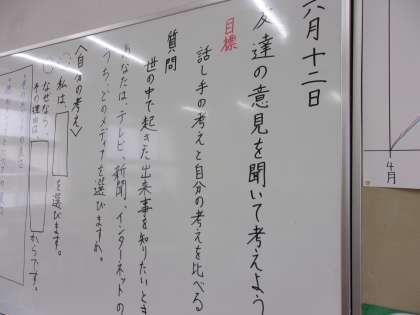 六月十二日
友達の意見を聞いて考えよう
目標
話し手の考えと自分の考えを比べる
質問
世の中で起きた出来事を知りたいとき
あなたは、テレビ、新聞、インターネットの
うち、どのメディアを選びますか。
〈自分の考え〉
私は、 を選びます。
なぜなら、
その理由は、 からです。
4月